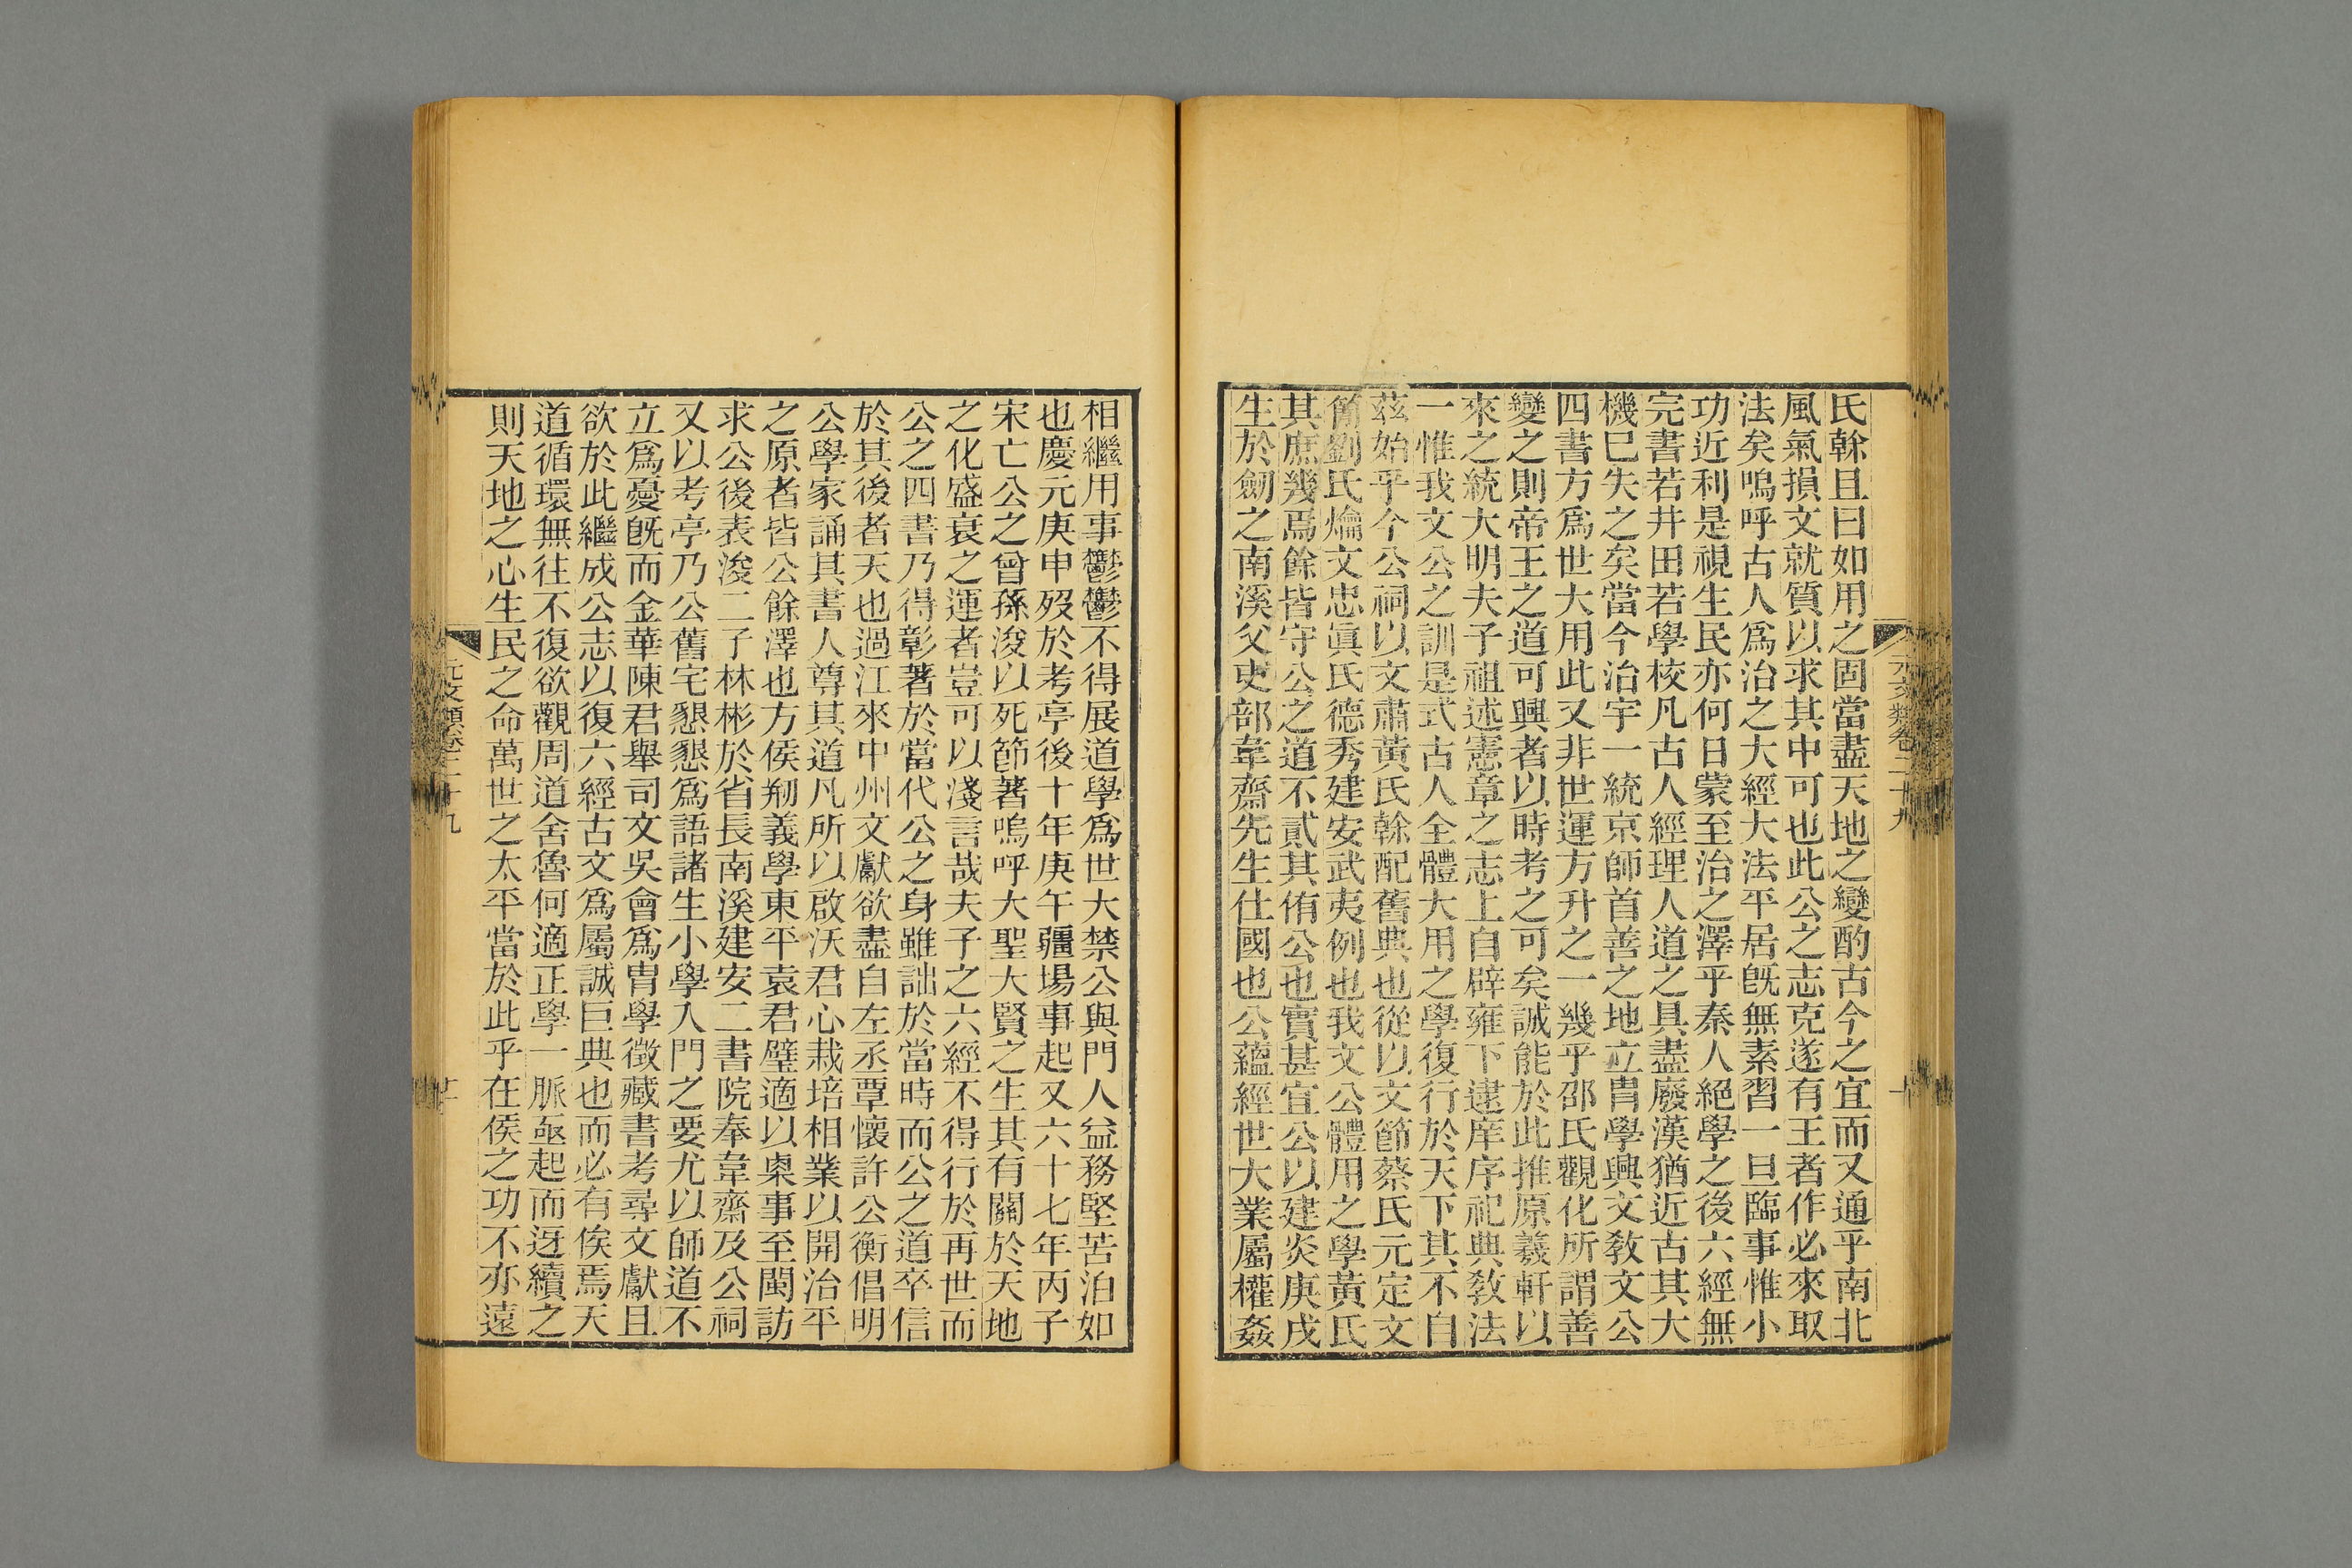 氏榦且曰如用之固當盡天地之變酌古今之宜而又通乎南北
風氣損文就質以求其中可也此公之志克遂有王者作必來取
法矣嗚呼古人爲治之大經大法平居旣無素習一旦臨事惟小
功近利是視生民亦何日蒙至治之澤乎秦人絕學之後六經無
完書若井田若學校凡古人經理人道之具盡廢漢猶近古其大
機已失之矣當今治宇一統京師首善之地立胄學興文敎文公
四書方爲世大用此又非世運方升之一幾乎邵氏觀化所謂善
變之則帝王之道可興者以時考之可矣誠能於此推原羲軒以
來之統大明夫子祖述憲章之志上自辟雍下逮庠序祀典敎法
一惟我文公之訓是式古人全體大用之學復行於天下其不自
茲始乎今公祠以文肅黃氏榦配舊典也從以文節蔡氏元定文
簡劉氏爚文忠眞氏德秀建安武夷例也我文公體用之學黃氏
其庶幾焉餘皆守公之道不貳其侑公也實甚宜公以建炎庚戌
生於劒之南溪父吏部韋齋先生仕國也公蘊經世大業屬權姦
元文類卷二十九
十
相繼用事鬱鬱不得展道學爲世大禁公與門人益務堅苦泊如
也慶元庚申歿於考亭後十年庚午疆場事起又六十七年丙子
宋亡公之曾孫浚以死節著嗚呼大聖大賢之生其有關於天地
之化盛衰之運者豈可以淺言哉夫子之六經不得行於再世而
公之四書乃得彰著於當代公之身雖詘於當時而公之道卒信
於其後者天也過江來中州文獻欲盡自左丞覃懷許公衡倡明
公學家誦其書人尊其道凡所以啟沃君心栽培相業以開治平
之原者皆公餘澤也方侯剏義學東平袁君璧適以臬事至閩訪
求公後表浚二子林彬於省長南溪建安二書院奉韋齋及公祠
又以考亭乃公舊宅懇懇爲語諸生小學入門之要尤以師道不
立爲憂旣而金華陳君舉司文吳會爲胄學徵藏書考尋文獻且
欲於此繼成公志以復六經古文爲屬誠巨典也而必有俟焉天
道循環無往不復欲觀周道舍魯何適正學一脈亟起而迓續之
則天地之心生民之命萬世之太平當於此乎在侯之功不亦遠
元文類卷二十九
十一